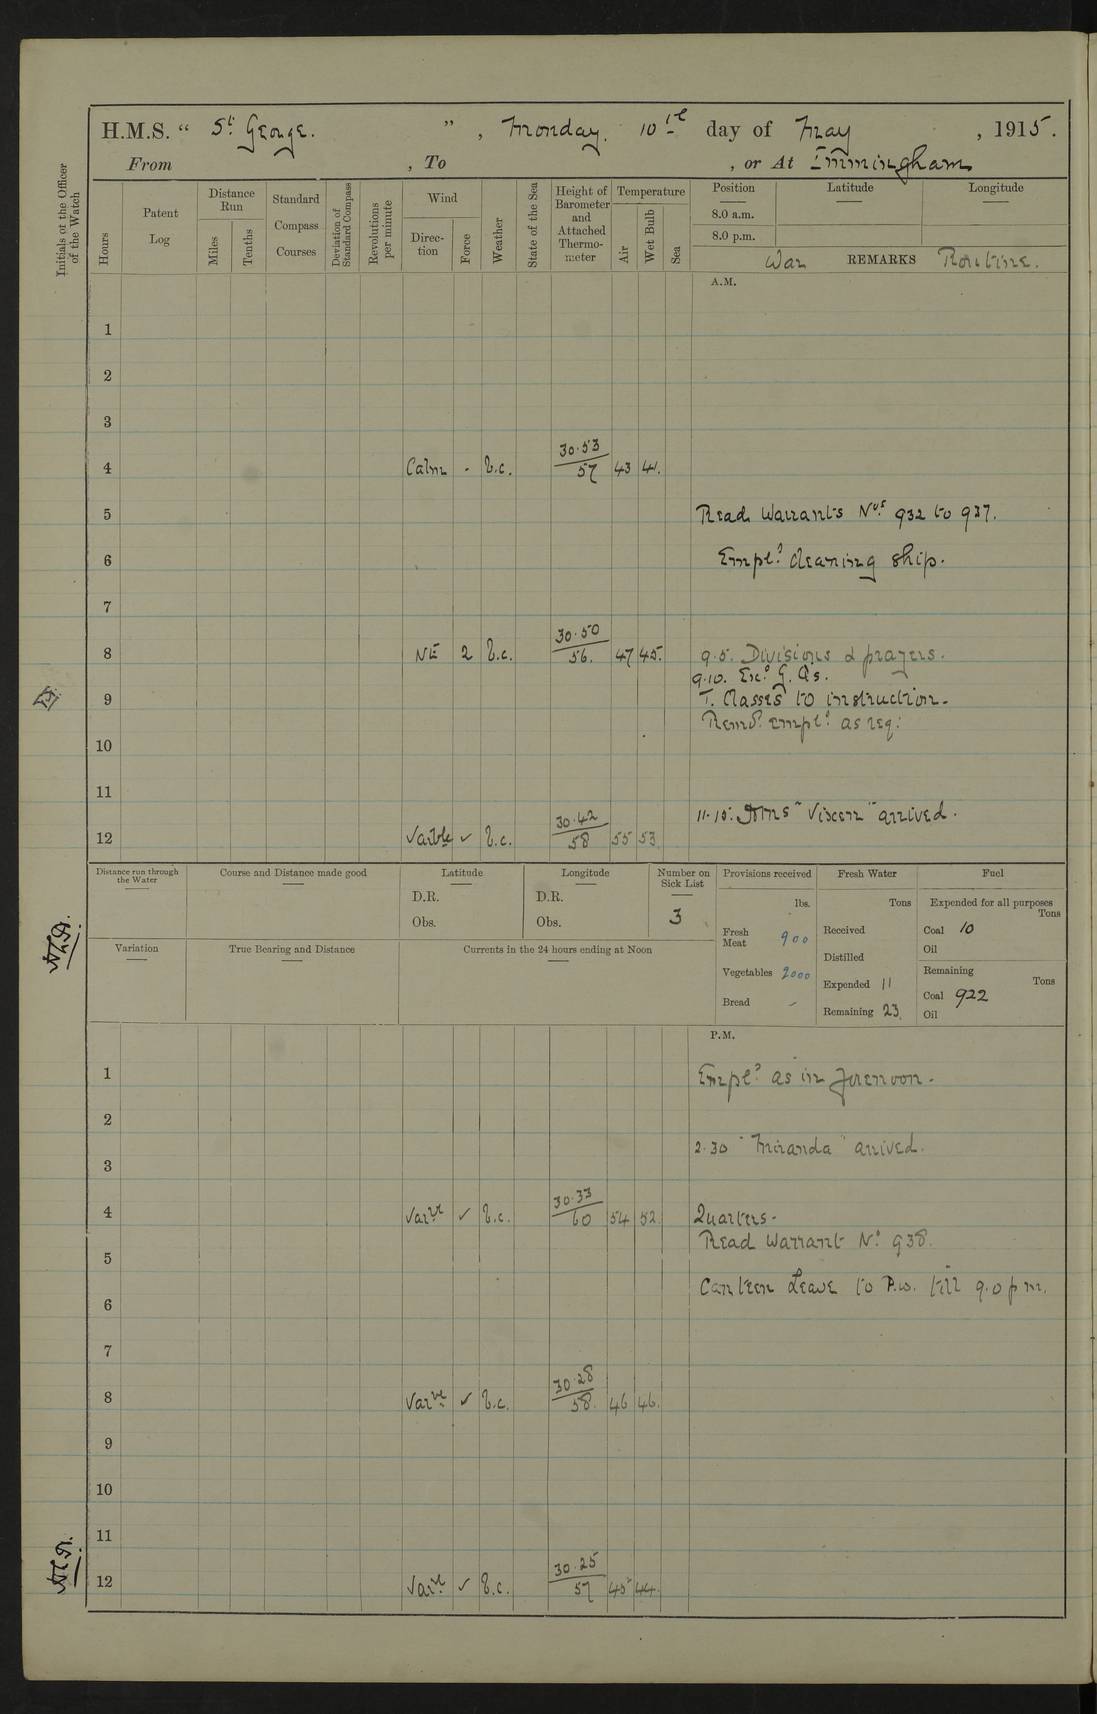 H.M.S. “ St. George. ” , Monday. 10th day of May , 1915.
From , To , or At Immingham
Initials of the Officer of the Watch
Hours
Patent Log
Distance Run
Miles Tenths
Standard Compass Courses
Deviation of Standard Compass
Revolutions per minute
Wind
Direction Force
Weather
State of the Sea
Height of Barometer and Attached Thermometer
Temperature
Air Wet Bulb Sea
Position Latitude Longitude
8.0 a.m.
8.0 p.m.
War REMARKS Routine.
A.M.
1
2
3
4 Calm - b.c. 30.53/57 43 41.
5 Read Warrants Nos. 932 to 937.
6 Empld. cleaning ship.
7
8 NE 2 b.c. 30.50/56. 47 45. 9.5. Divisions & prayers.
9.10. Exd. G. Qs.
9 T. Classes to instruction.
Remdr. empld. as req:
10
11
11.15. HMS "Vixen" arrived.
12 Varble ✓ b.c. 30.42/58 55 53
Distance run through the Water
Course and Distance made good
Latitude
D.R.
Obs.
Longitude
D.R.
Obs.
Number on Sick List
3
Provisions received
lbs.
Fresh Meat 900
Vegetables 2000
Bread -
Fresh Water
Tons
Received
Distilled
Expended 11
Remaining 23.
Fuel
Expended for all purposes
Tons
Coal 10
Oil
Remaining
Tons
Coal 922
Oil
Variation
True Bearing and Distance
Currents in the 24 hours ending at Noon
P.M.
1 Empld. as in forenoon.
2
2.30 "Miranda" arrived.
3
4 Varle ✓ b.c. 30.33/60 54 52 Quarters.
Read Warrant No. 938.
5
Canteen Leave to P.W. till 9.0 p m.
6
7
8 Varle ✓ b.c. 30.28/58. 46 46.
9
10
11
12 Varle ✓ b.c. 30.25/57 45 44